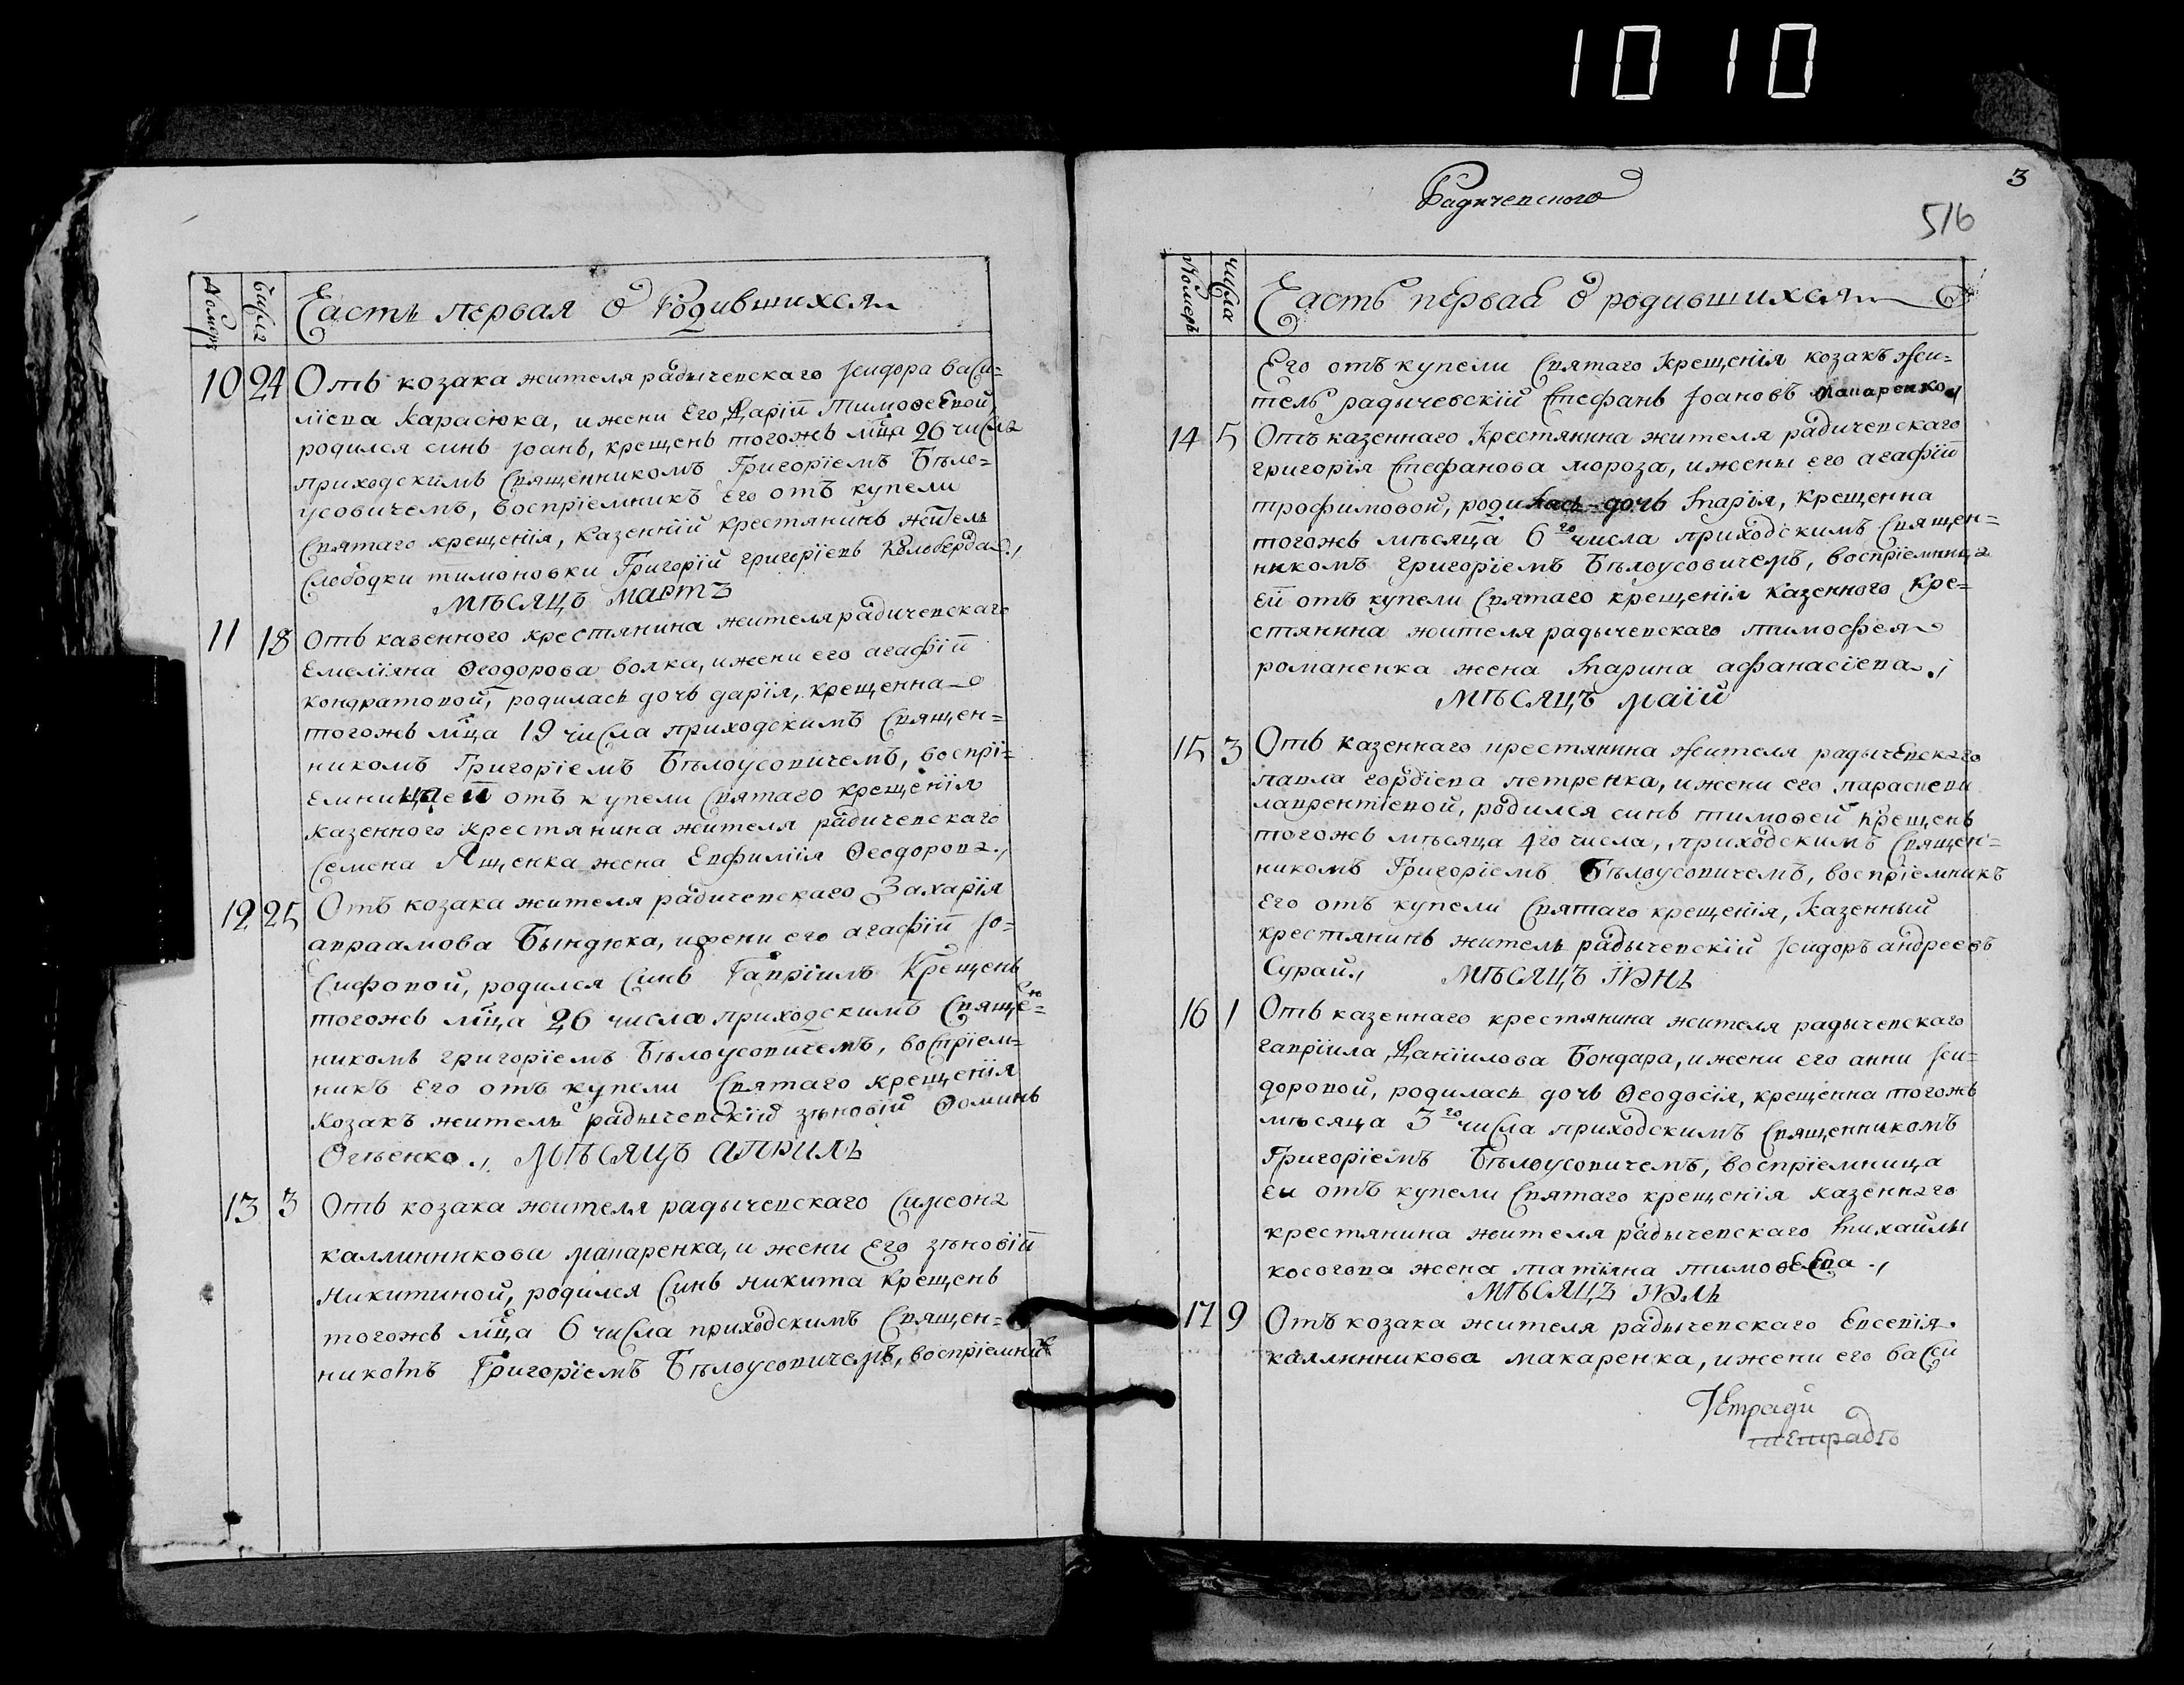 1010
Номеръ
числа
Часть первая о родившихся
10 24 Отъ козака жителя радычевскаго Исидора Васи-
лїева Карасюка, и жени Его Дарїи Тимоѳеевой,
родился синъ Іоанъ, крещенъ тогожъ мца 26 числа
приходскимъ Священникомъ Григорїемъ Бѣло-
усовичемъ, воспрїемникъ Его отъ купели
Святаго крещенїя, казеннїй крестянинъ житель
Слободки тимоновки Григорїй григорїевъ Колоберда.,
мѣсяцъ мартъ
11 18 Отъ казенного крестянина жителя радичевскаго
Емелїяна Ѳеодорова волка, и жени его агафїи
кондратовой, родилась дочь дарїя, крещенна
тогожъ мца 19 числа приходскимъ Священ-
никомъ Григорїемъ Бѣлоусовичемъ, воспрї-
емница еи отъ купели Святаго крещенїя
казенного крестянина жителя радичевскаго
Семена Ященка жена Евфимїя Ѳеодорова.,
12 25 Отъ козака жителя радичевскаго Захарїя
авраамова Бындюка, и жени его агафїи Іо-
сифовой, родился Синъ Гаврїилъ Крещенъ
тогожъ мца 26 числа приходскимъ Священ-
никомъ григорїемъ Бѣлоусовичемъ, воспрїем-
никъ Его отъ купели Святаго крещенїя
Козакъ житель радычевскїй зѣновїй Ѳоминъ
Огіенко., мѣсяцъ априль
13 3 Отъ козака жителя радычевскаго Симеона
каллинникова макаренка, и жени Его зѣновїи
Никитиной, родился Синъ никита крещенъ
тогожъ мца 6 числа приходскимъ Священ-
никомъ Григорїемъ Бѣлоусовичемъ, воспрїемникъ
3
Радичевского
516
Номеръ
числа
Часть первая о родившихся
Его отъ купели Святаго Крещенїя козакъ жи-
тель радычевскїй Стефанъ Іоановъ макаренко,
14 5 Отъ казеннаго Крестянина жителя радичевскаго
григорїя Стефанова мороза, и жены его агафїи
трофимовой, родилась дочь Марїя, крещенна
тогожъ мѣсяца 6го числа приходскимъ Священ-
никомъ григорїемъ Бѣлоусовичемъ, воспрїемница
еи отъ купели Святаго крещенїя казенного Кре-
стянина жителя радычевскаго тимосфея
романенка жена Марина афанасїева.,
мѣсяцъ маїй
15 3 Отъ казеннаго крестянина жителя радычевскаго
павла гордїева петренка, и жени его параскеви
лаврентїевой, родился синъ тимоѳей крещенъ
тогожъ мѣсяца 4го числа, приходскимъ Священ-
никомъ Григорїемъ Бѣлоусовичемъ, воспрїемникъ
его отъ купели Святаго крещенїя, Казенный
крестянинъ житель радычевскїй Исидоръ андреевъ
Сурай., мѣсяцъ іюнь
16 1 Отъ казеннаго крестянина жителя радычевскаго
гаврїила Данїилова Бондара, и жени его анни Иси-
доровой, родилась дочь Ѳеодосїя, крещенна тогожъ
мѣсяца 3го числа приходскимъ Священникомъ
Григорїемъ Бѣлоусовичемъ, воспрїемница
еи отъ купели Святаго крещенїя казеннаго
крестянина жителя радычевскаго Михайлы
косогова жена татїяна тимоѳеева.,
мѣсяцъ іюль
17 9 Отъ козака жителя радычевскаго Евсевїя
каллинникова макаренка, и жени его васси
Тетради
тетрадъ